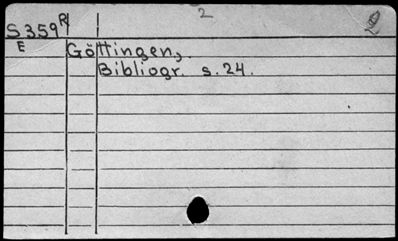 2 2
S359R
E Göttingen,
Bibliogr. s. 24.